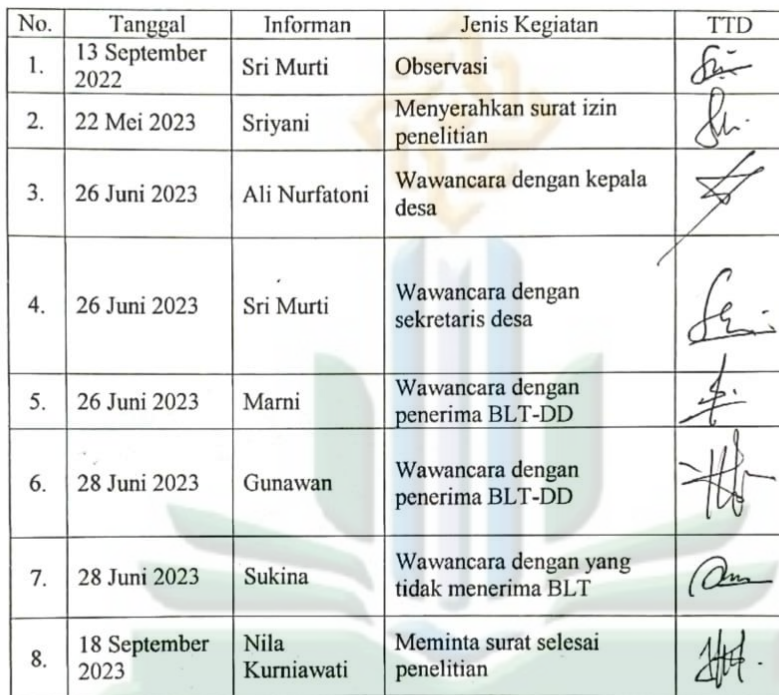 No. Tanggal Informan Jenis Kegiatan TTD
1. 13 September 2022 Sri Murti Observasi
2. 22 Mei 2023 Sriyani Menyerahkan surat izin penelitian
3. 26 Juni 2023 Ali Nurfatoni Wawancara dengan kepala desa
4. 26 Juni 2023 Sri Murti Wawancara dengan sekretaris desa
5. 26 Juni 2023 Marni Wawancara dengan penerima BLT-DD
6. 28 Juni 2023 Gunawan Wawancara dengan penerima BLT-DD
7. 28 Juni 2023 Sukina Wawancara dengan yang tidak menerima BLT
8. 18 September 2023 Nila Kurniawati Meminta surat selesai penelitian